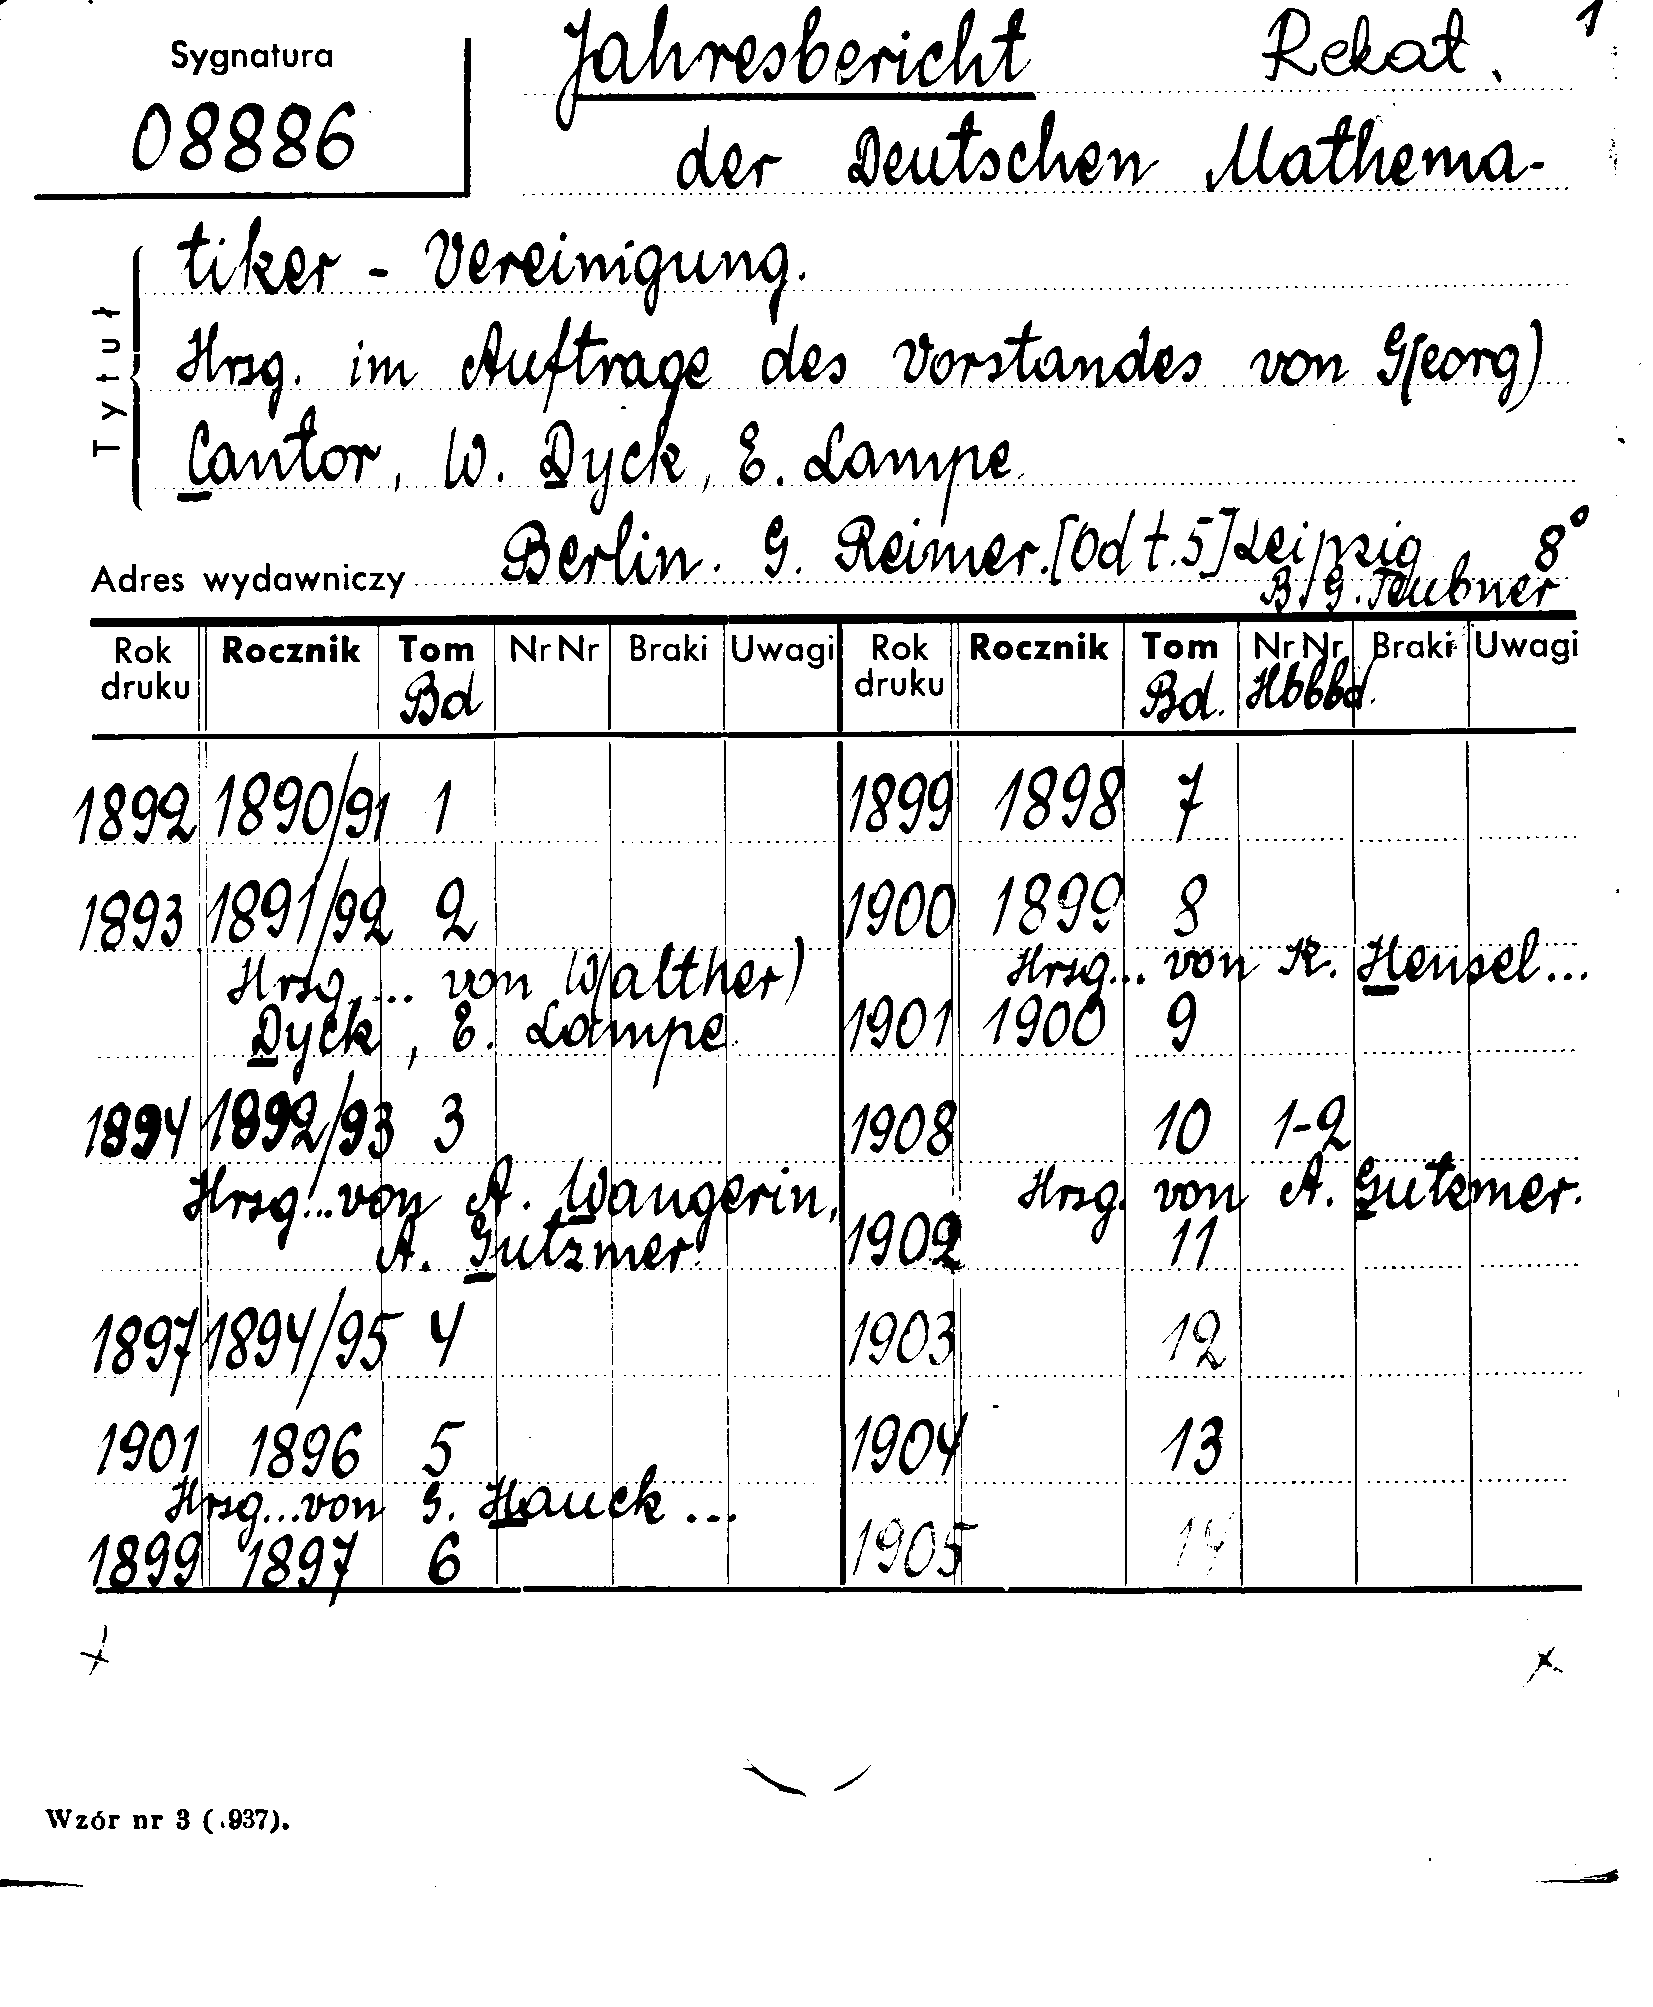 1
Sygnatura
08886
Jahresbericht Rekat.
der Deutschen Mathema-
tiker - Vereinigung.
Hrsg. im Auftrage des Vorstandes von G(eorg)
Cantor, W. Dyck, E. Lampe.
Tytuł
Adres wydawniczy Berlin. G. Reimer. [Od t. 5] Leipzig 8°
B. G. Teubner
Rok druku Rocznik Tom Nr Nr Braki Uwagi Rok druku Rocznik Tom Nr Nr Braki Uwagi
Bd Bd. Hbbbd.
1892 1890/91 1 1899 1898 7
1893 1891/92 2 1900 1899 8
Hrsg.... von W(alther) Hrsg... von K. Hensel...
Dyck, E. Lampe. 1901 1900 9
1894 1892/93 3 1908 10 1-2
Hrsg...von A. Wangerin, Hrsg. von A. Gutzmer.
A. Gutzmer. 1902 11
1897 1894/95 4 1903 12
1901 1896 5 1904 13
Hrsg...von G. Hauck...
1899 1897 6 1905 14
Wzór nr 3 (.937).